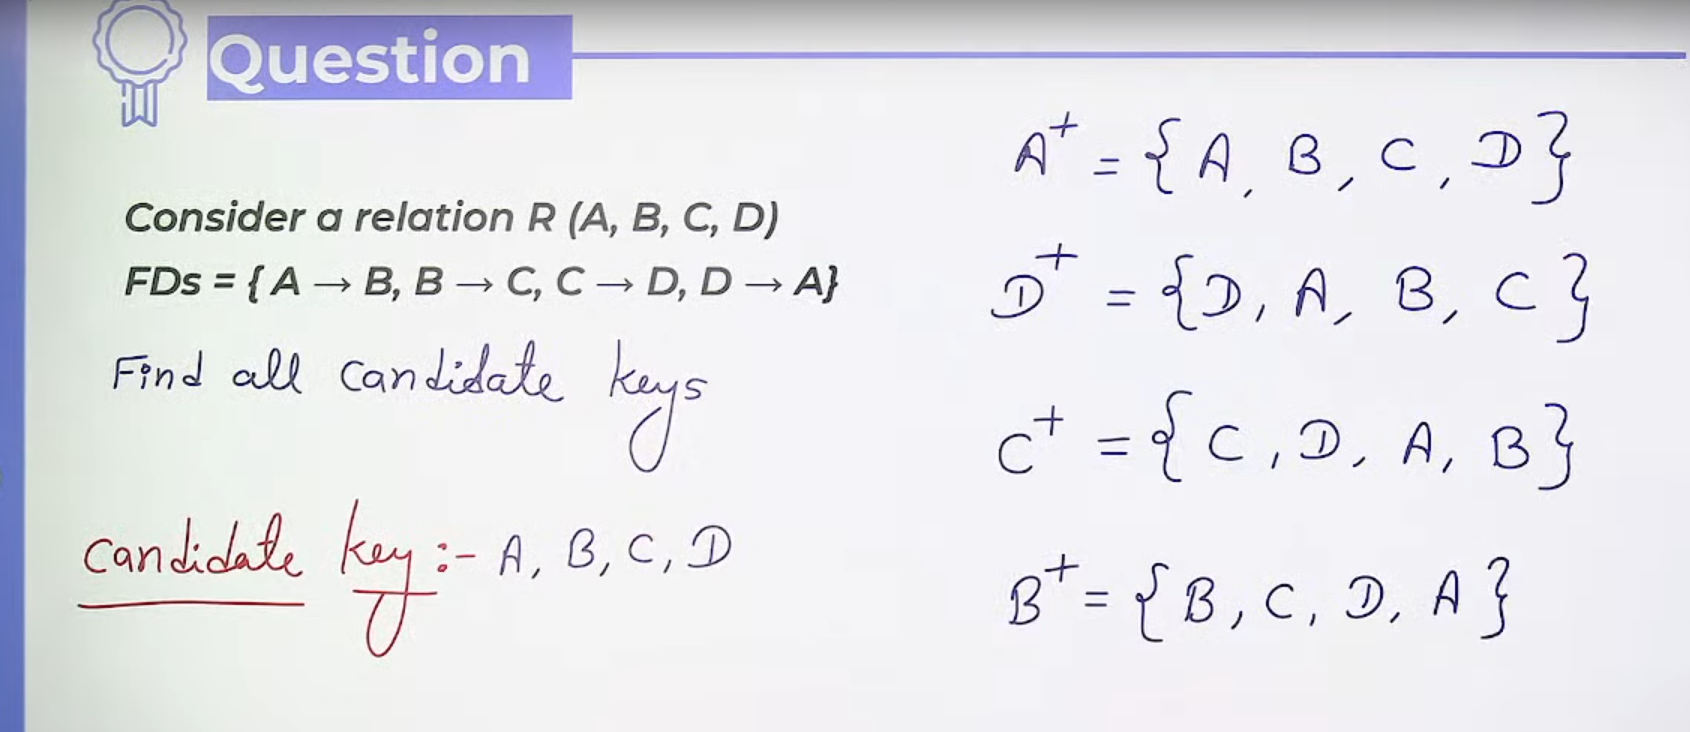 Question
Consider a relation R (A, B, C, D)
FDs = { A → B, B → C, C → D, D → A}
Find all candidate keys
candidate key :- A, B, C, D
A⁺ = {A, B, C, D}
D⁺ = {D, A, B, C}
C⁺ = {C, D, A, B}
B⁺ = {B, C, D, A}